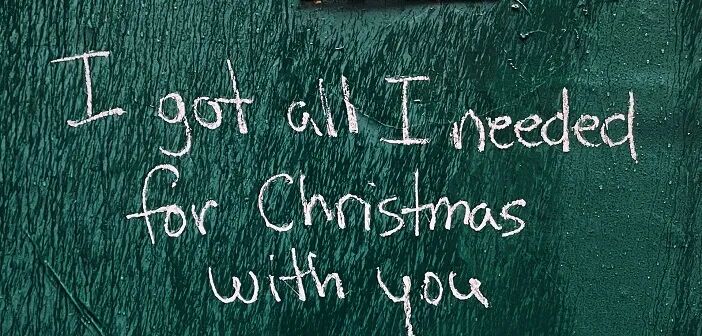 I got all I needed
for Christmas
with you